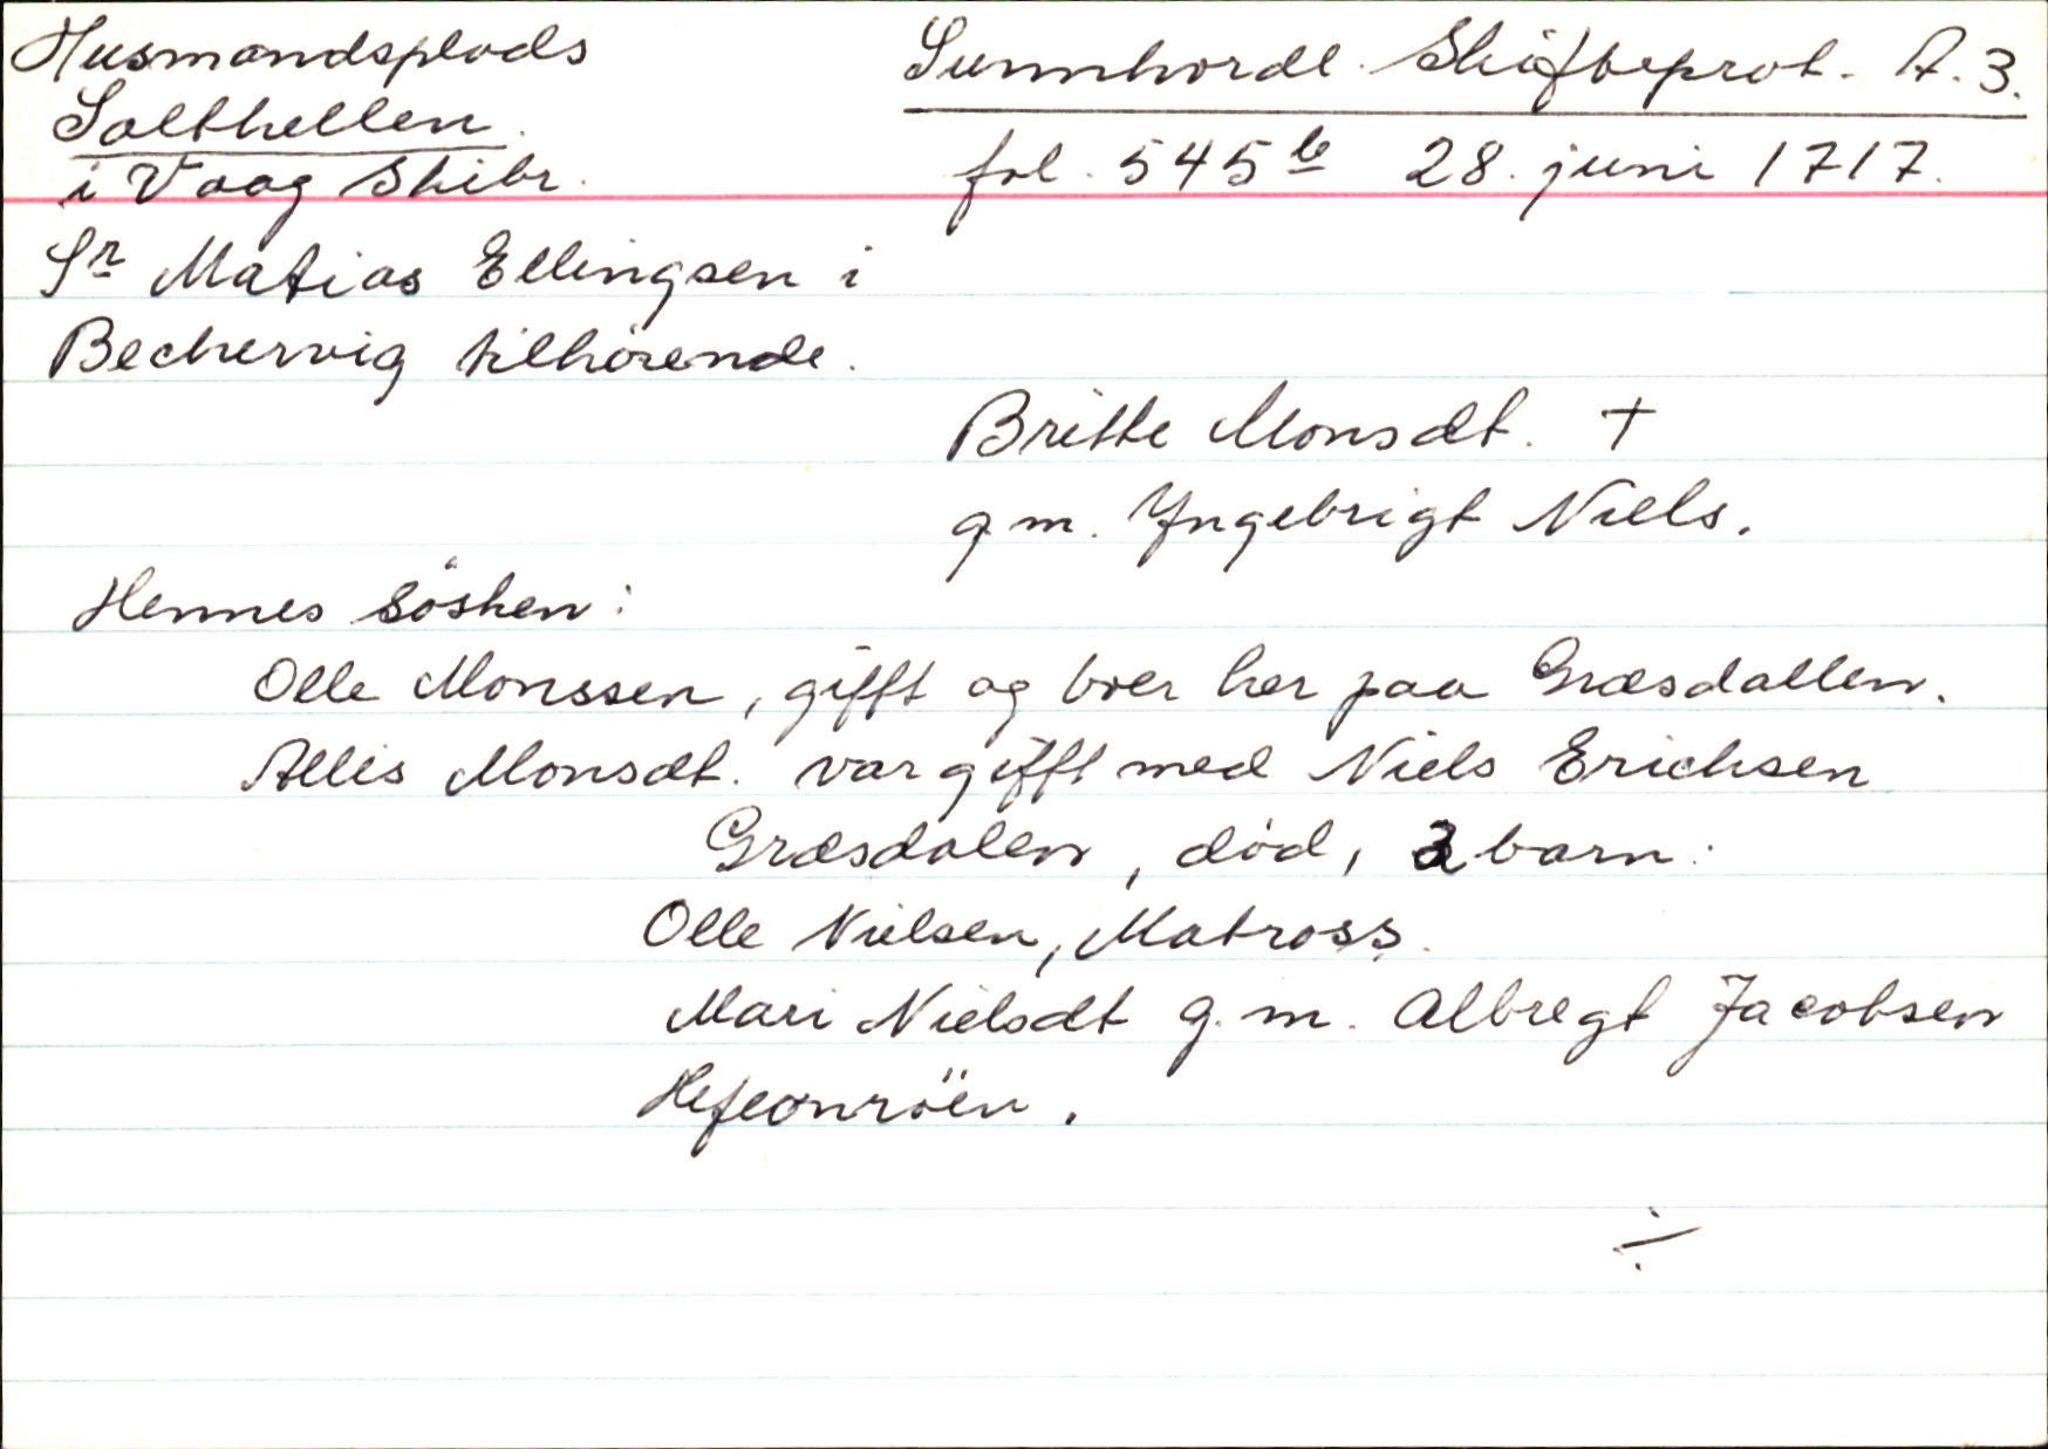 Husmandsplads
Salthellen.
i Vaag Skibr.
Sunnhordl. Skiftteprot. A. 3.
fol. 545 b 28. juni 1717.
Sr Matias Ellingsen i
Bechervig tilhörende.
Britte Monsdt. +
g.m. Yngebrigt Niels.
Hennes Sösken:
Olle Monssen, gifft og boer her paa Græsdallen.
Allis Monsdt. var gifft med Niels Erichsen
Græsdalen, död, 2 barn:
Olle Nielsen, Matross.
Mari Nielsdt g.m. Albregt Jacobsen
Hefeonröen.
÷